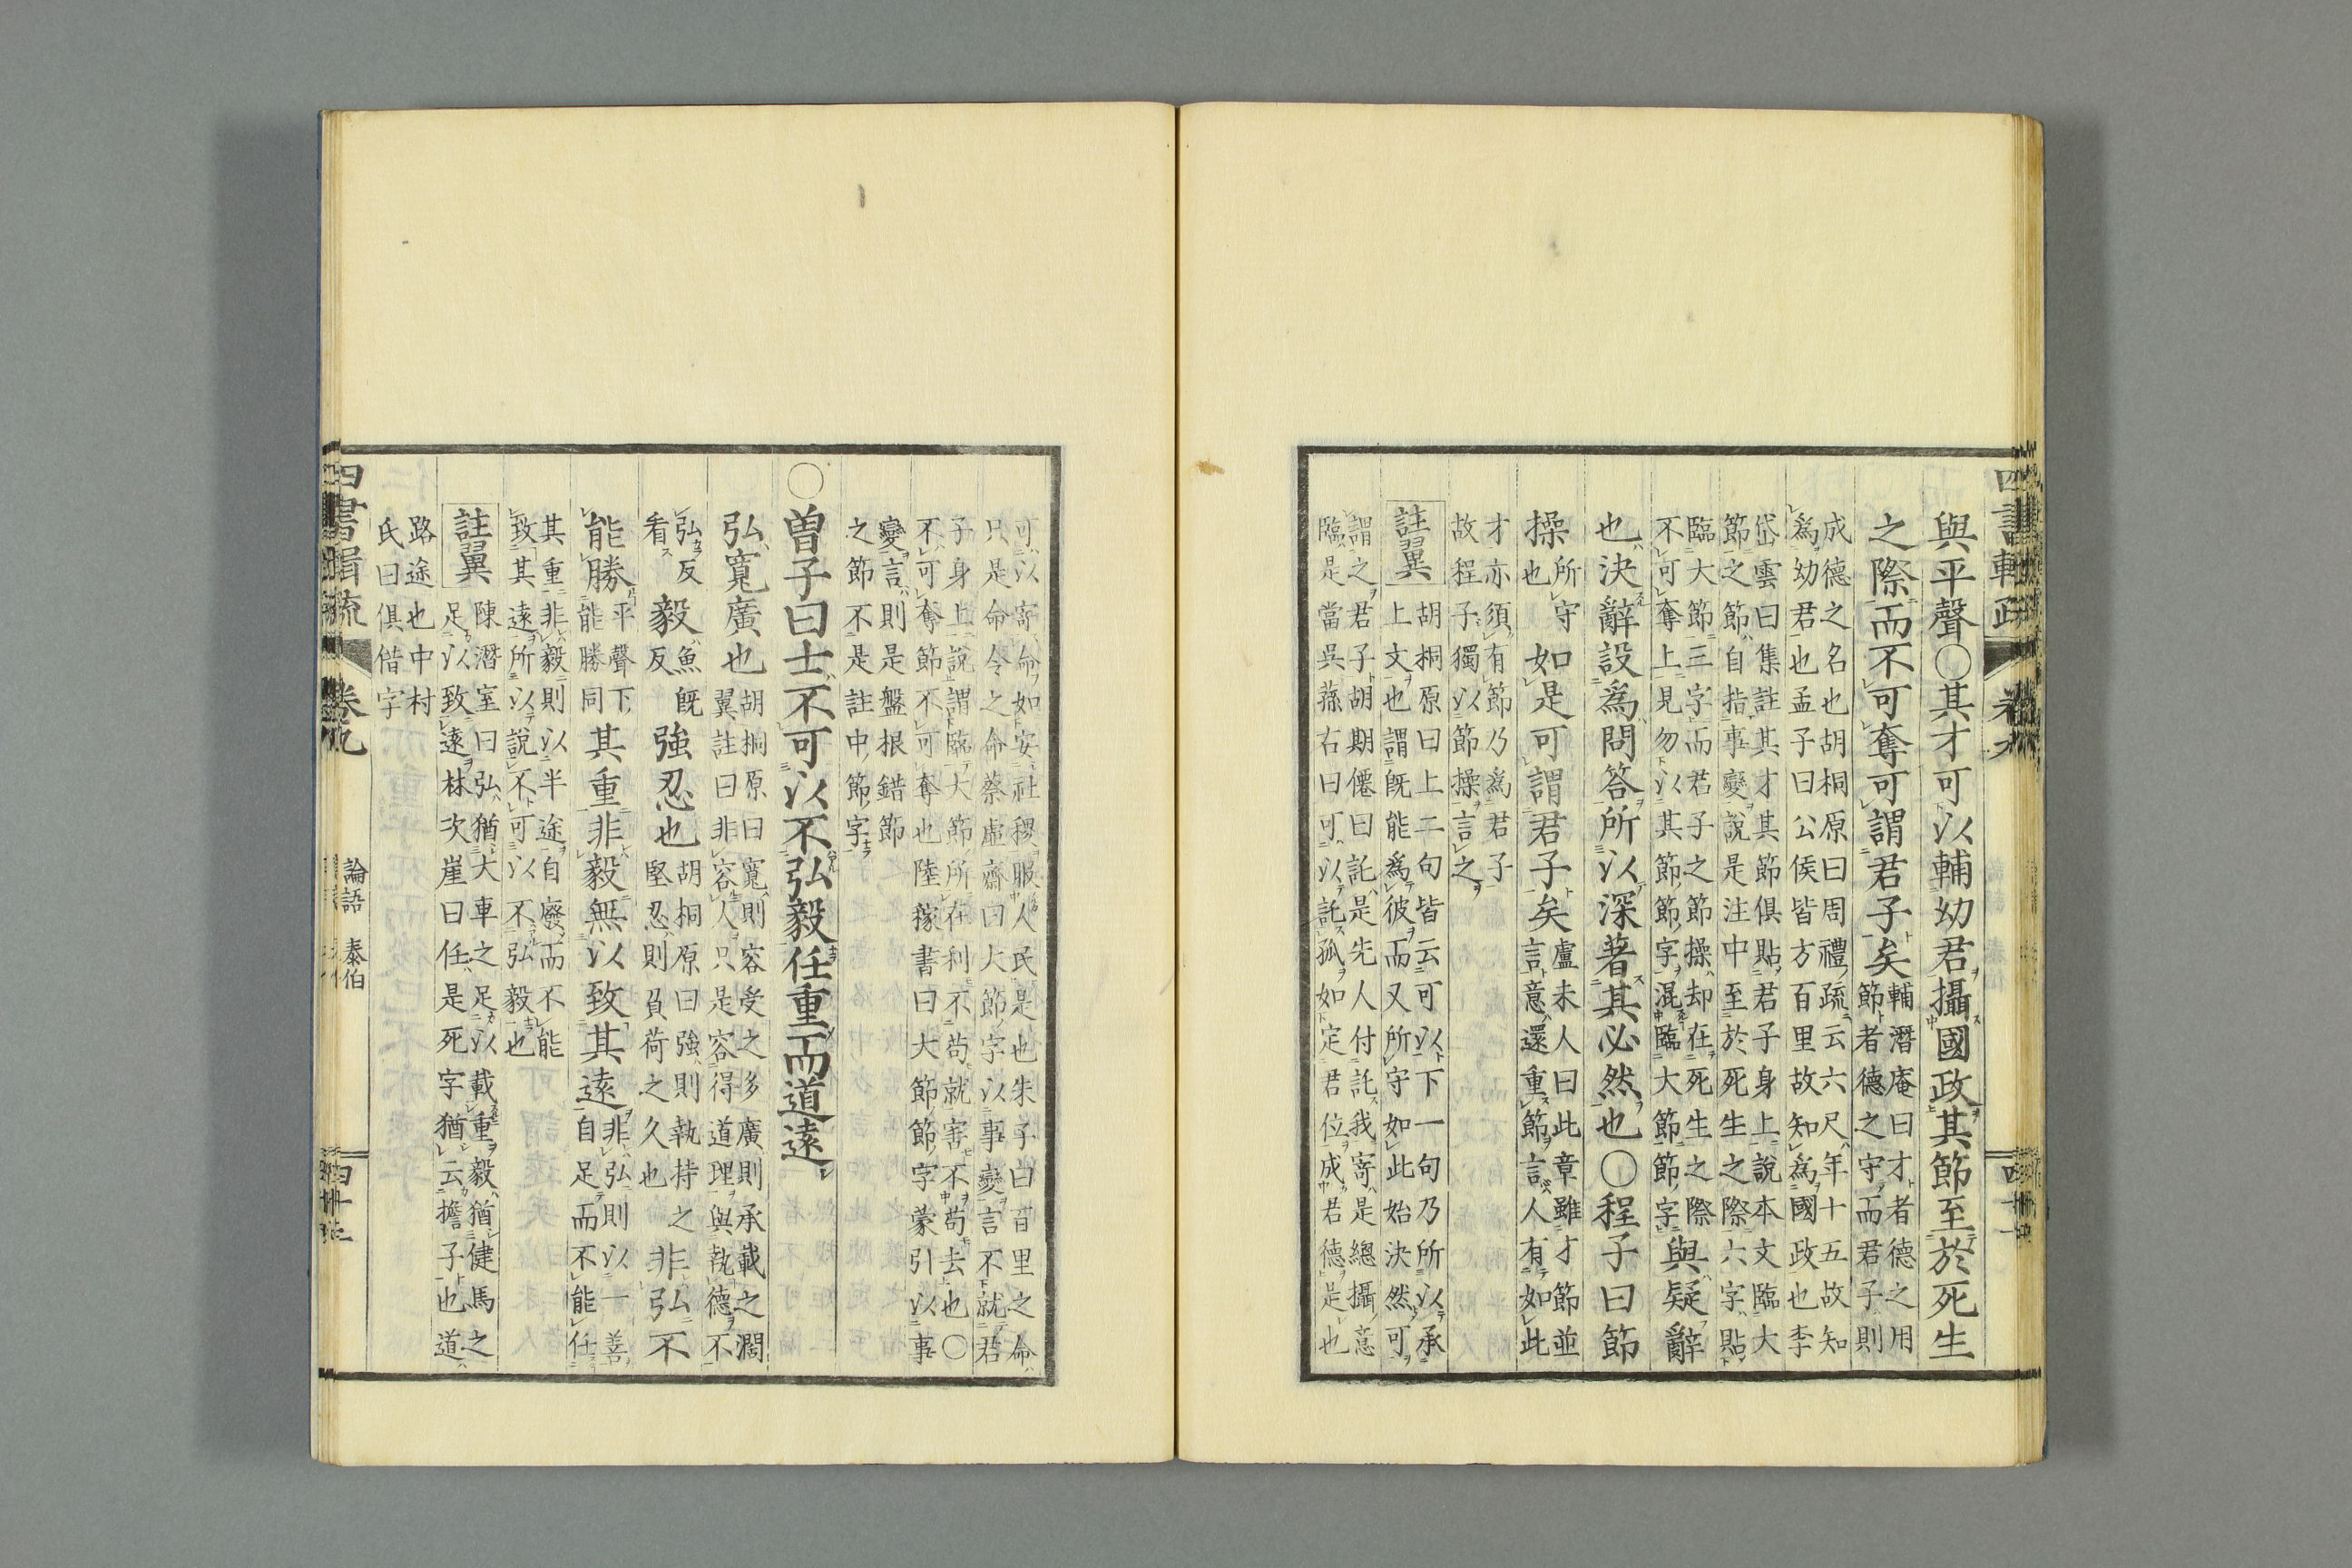 與平聲〇其才可以輔幼君攝國政其節至於死生
之際而不可奪可謂君子矣
輔潛庵曰才者德之用
節者德之守而君子則
成德之名也胡桐原曰周禮疏云六尺年十五故知
爲幼君也孟子曰公侯皆方百里故知爲國政也李
岱雲曰集註其才其節俱貼君子身上說本文臨大
節之節自指事變說是注中至於死生之際六字貼
臨大節三字而君子之節操却在死生之際
不可奪上見勿以其節節字混臨大節節字
與疑辭
也決辭設爲問答所以深著其必然也〇程子曰節
操
所守
也
如是可謂君子矣
盧未人曰此章雖才節並
言意還重節言人有如此
才亦須有節乃爲君子
故程子獨以節操言之
註翼
胡桐原曰上二句皆云可以下一句乃所以承
上文也謂既能爲彼而又所守如此始決然可
謂之君子胡期僊曰託是先人付託我寄是總攝意
臨是當吳蓀右曰可以託孤如定君位成君德是也
可以寄命如安社稷服人民是也朱子曰百里之命
只是命令之命蔡虛齋曰大節字以事變言不就君
子身上說謂臨大節所在利不苟就害不苟去也〇
不可奪節不可奪也陸稼書曰大節節字蒙引以事
變言則是盤根錯節
之節不是註中節字
〇曾子曰士不可以不弘毅任重而道遠
弘寬廣也
胡桐原曰寬則容受之多廣則承載之濶
翼註曰非容人只是容得道理與執德不
弘反
看
毅
魚既
反
強忍也
胡桐原曰強則執持之
堅忍則負荷之久也
非弘不
能勝
平聲下
能勝同
其重非毅無以致其遠
非弘則以一善
自足而不能任
其重非毅則以半途自廢而不能
致其遠所以說不可以不弘毅也
註翼
陳潛室曰弘猶大車之足以載重毅猶健馬之
足以致遠林次崖曰任是死字猶云擔子也道
路途也中村
氏曰俱借字
四書輯疏
卷九
論語 泰伯